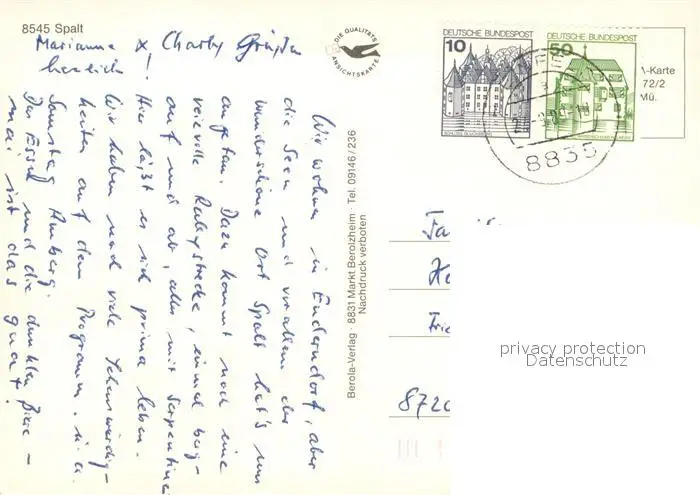 8545 Spalt
Marianne & Charly
herzlich!
DIE QUALITÄTS
ANSICHTSKARTE
10
DEUTSCHE BUNDESPOST
50
DEUTSCHE BUNDESPOST
8835
-Karte
72/2
Mü.
Wir wohnen in Enderndorf, aber
die Seen und vor allem der
wunderschöne Ort Spalt hat's uns
angetan. Dazu kommt noch eine
reizvolle Radlstrecke, einmal berg-
auf und ab, alles mit Serpentinen
Hier läßt es sich prima leben.
Wir haben noch viele Sehenswürdig-
keiten auf dem Programm. u.a.
Samstag Amberg.
Das Essen und die dunklen Biere –
mei ist das guat!
Berola-Verlag · 8831 Markt Berolzheim · Tel. 09146/236
Nachdruck verboten
Fa
Ha
Frie
8720
privacy protection
Datenschutz